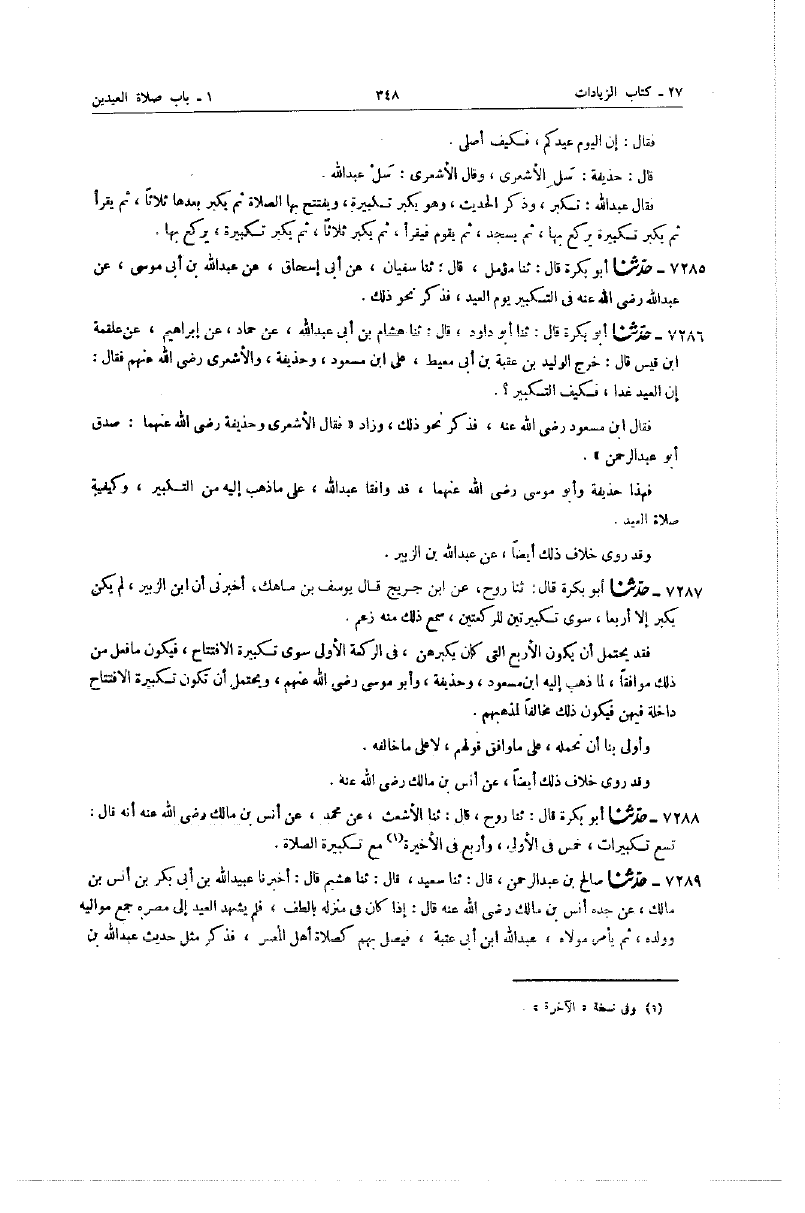 ٢٧ ـ كتاب الزيادات ٣٤٨ ١ ـ باب صلاة العيدين
فقال : إن اليوم عيدكم ، فكيف أصلى .
قال : حذيفة : سَل الأشعرى ، وقال الأشعرى : سَلْ عبدالله .
فقال عبدالله : تكبر ، وذكر الحديث ، وهو يكبر تكبيرة ، ويفتتح بها الصلاة ثم يكبر بعدها ثلاثاً ، ثم يقرأ
ثم يكبر تكبيرة يركع بها ، ثم يسجد ، ثم يقوم فيقرأ ، ثم يكبر ثلاثاً ، ثم يكبر تكبيرة ، يركع بها .
٧٢٨٥ ـ حدثنا أبو بكرة قال : ثنا مؤمل ، قال : ثنا سفيان ، عن أبى إسحاق ، عن عبدالله بن أبى موسى ، عن
عبدالله رضى الله عنه فى التكبير يوم العيد ، فذكر نحو ذلك .
٧٢٨٦ ـ حدثنا أبو بكرة قال : ثنا أبو داود ، قال : ثنا هشام بن أبى عبدالله ، عن حماد ، عن إبراهيم ، عن علقمة
ابن قيس قال : خرج الوليد بن عقبة بن أبى معيط ، على ابن مسعود ، وحذيفة ، والأشعرى رضى الله عنهم فقال :
إن العيد غدا ، فكيف التكبير ؟ .
فقال ابن مسعود رضى الله عنه ، فذكر نحو ذلك ، وزاد « فقال الأشعرى وحذيفة رضى الله عنهما : صدق
أبو عبدالرحمن » .
فهذا حذيفة وأبو موسى رضى الله عنهما ، قد وافقا عبدالله ، على ماذهب إليه من التكبير ، وكيفيةِ
صلاة العيد .
وقد روى خلاف ذلك أيضاً ، عن عبدالله بن الزبير .
٧٢٨٧ ـ حدثنا أبو بكرة قال : ثنا روح ، عن ابن جريج قال يوسف بن ماهك ، أخبرنى أن ابن الزبير ، لم يكن
يكبر إلا أربعا ، سوى تكبيرتين للركعتين ، سمع ذلك منه زعم .
فقد يحتمل أن يكون الأربع التى كان يكبرهن ، فى الركعة الأولى سوى تكبيرة الافتتاح ، فيكون مافعل من
ذلك موافقاً ، لما ذهب إليه ابن مسعود ، وحذيفة ، وأبو موسى رضى الله عنهم ، ويحتمل أن تكون تكبيرة الافتتاح
داخلة فيهن فيكون ذلك مخالفاً لمذهبهم .
وأولى بنا أن نحمله ، على ماوافق قولهم ، لاعلى ماخالفه .
وقد روى خلاف ذلك أيضاً ، عن أنس بن مالك رضى الله عنه .
٧٢٨٨ ـ حدثنا أبو بكرة قال : ثنا روح ، قال : ثنا الأشعث ، عن محمد ، عن أنس بن مالك رضى الله عنه أنه قال :
تسع تكبيرات ، خمس فى الأولى ، وأربع فى الأخيرة(١) مع تكبيرة الصلاة .
٧٢٨٩ ـ حدثنا صالح بن عبدالرحمن ، قال : ثنا سعيد ، قال : ثنا هشيم قال : أخبرنا عبيدالله بن أبى بكر بن أنس بن
مالك ، عن جده أنس بن مالك رضى الله عنه قال : إذا كان فى منزله بالطف ، فلم يشهد العيد إلى مصره جمع مواليه
وولده ، ثم يأمر مولاه ، عبدالله ابن أبى عتبة ، فيصلى بهم كصلاة أهل المصر ، فذكر مثل حديث عبدالله بن
(١) وفى نسخة « الآخرة » .